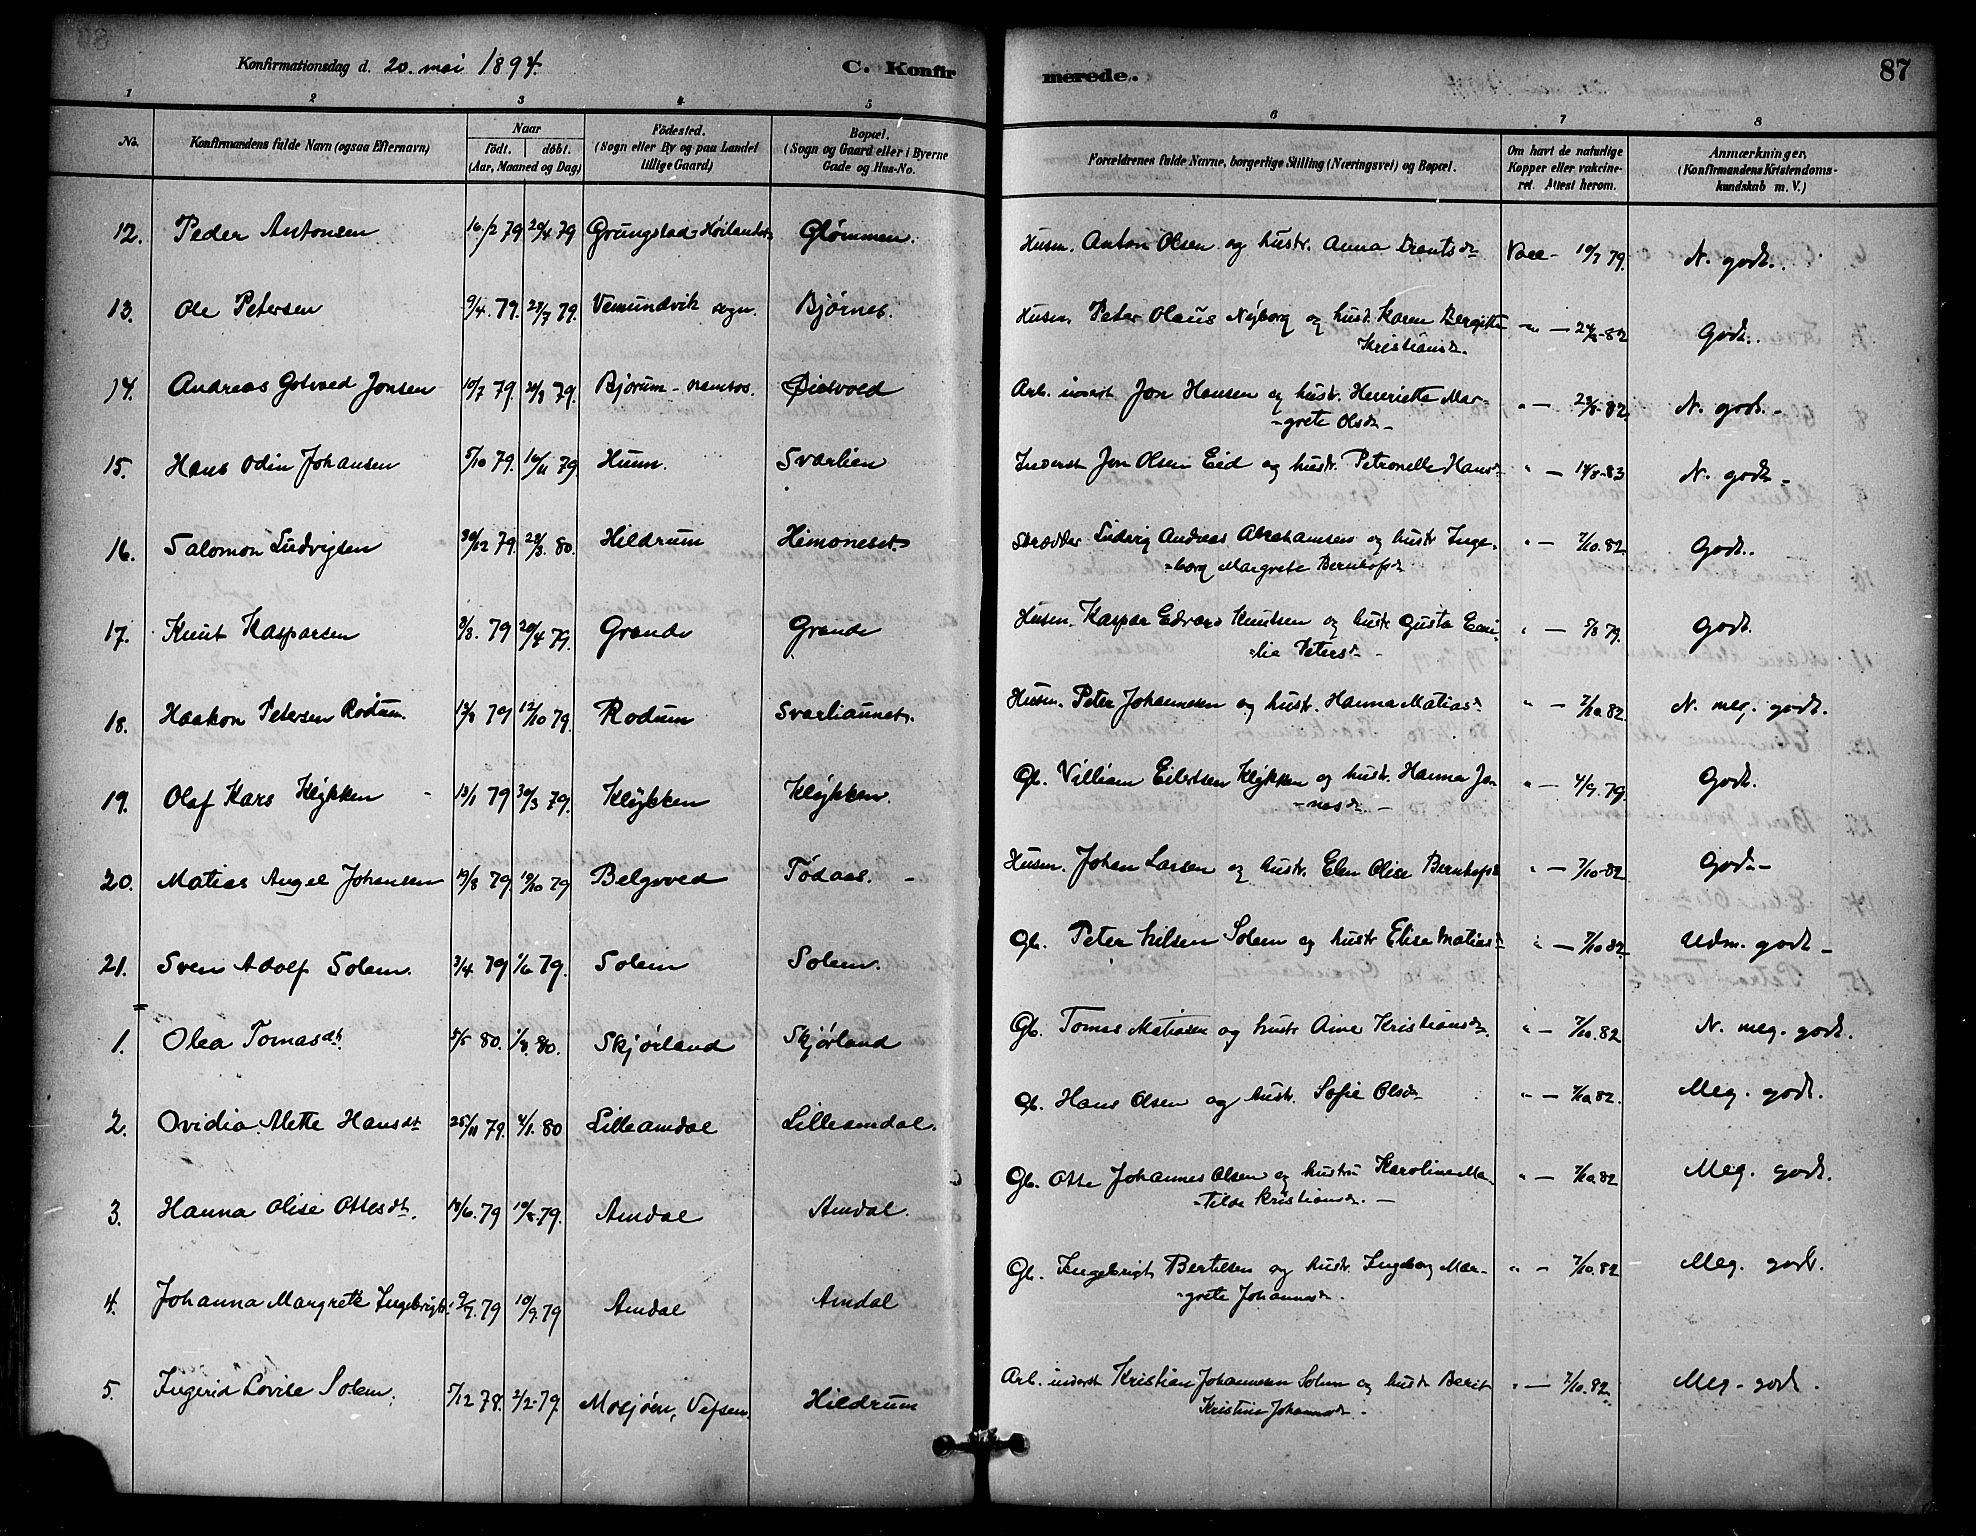 Konfirmationsdag d. 20. mai 1894.
C. Konfirmerede.
87
1 2 3 4 5 6 7 8
No. Konfirmandens fulde Navn (ogsaa Efternavn) Naar Födt. döbt. (Aar, Maaned og Dag) Födested. (Sogn eller By og paa Landet tillige Gaard) Bopæl. (Sogn og Gaard eller i Byerne Gade og Hus-No. Forældrenes fulde Navne, borgerlige Stilling (Næringsvei) og Bopæl. Om havt de naturlige Kopper eller vakcineret. Attest herom. Anmærkninger, (Konfirmandens Kristendomskundskab m. V.)
12. Peder Antonsen 16/2 79 20/4 79 Grungstad-Høilandet Glömmen. Husm. Anton Olsen og hustr. Anna Brentsdr Vacc - 10/7 79. N. godt.
13. Ole Petersen 9/4. 79. 27/7 79. Vemundvik sogn. Bjørnes. Husm. Peter Olaus Nyborg og hust. Karen Bergitte
Kristiansdr. " — 24/8-82 Godt.
14. Andreas Gotvard Jonsen 10/7 79. 20/8 79. Bjørum - namsos. Arb. inderst Jon Hansen og hustr. Henriette Mar-
-grete Olsdr - " — 28/8-82. N. godt. -
15. Hans Odin Johansen 5/10 79. 16/11 79. Hunn. Svarlien Inderst Jon Olsen Eid og hustr. Petronelle Hansdr " — 14/8-83 N. godt -
16. Salomon Ludvigsen 30/12 79. 28/3. 80. Hildrum Himoneset. Skrædder Ludvig Andreas Abrahamsen og hustr Inge-
-borg Margrete Bernhofsdr " — 7/10. 82. Godt.
17. Knut Kasparsen 3/3. 79 20/4 79. Grande Grande Husm. Kaspar Edvard Knutsen og hustr Gusta Emi-
lie Petersdr - " — 5/8 79. Godt.
18. Haakon Petersen Rodum. 12/8 79 12/10 79. Rodum Svarliaunet. Husm. Peter Johannesen og hustr. Hanna Matiasdr " — 7/10 82. N. meg. godt.
19. Olaf Kars Klykken 13/1 79 30/3 79. Klykken Klykken. Gb. Villiam Eilertsen Klykken og hustr. Hanna Jo-
-nasdr - " — 4/9. 79. Godt.
20. Matias Angel Johansen 19/8 79. 19/10 79 Belgvoed Tødaas. - Husm. Johan Larsen og hustr. Elen Olise Bernhofsdr " — 7/10-82 Godt -
21. Sven Adolf Solem. 3/4. 79 1/6 79. Solem Solem. Gb. Peter Nilsen Solem og hustr Elise Matiasdr " — 7/10 82. Udm. godt -
1. Olea Tomasdt. 5/5 80. 1/8. 80. Skjørland Skjørland Gb. Tomas Matiasen og hustr Aine Kristiansdr. " — 7/10. 82 N. meg. godt.
2. Ovidia Alette Hansdt 25/11 79. 4/1. 80 Lilleamdal Lilleamdal. Gb. Hans Olsen og hustr. Sofie Olsdr " — 7/10 82. Meg. godt.
3. Hanna Olise Ottesdt. 18/6. 79 10/8. 79. Amdal Amdal. Gb. Otte Johannes Olsen og hustru Karoline Ma-
-tilde Kristiansdr. - " — 7/10 82 Meg. godt.
4. Johanna Margrete Ingebrigtsdt 9/7. 79 10/9. 79 Amdal Amdal Gb. Ingebrigt Bertelsen og hustr. Ingeborg Mar-
-grete Johannesdr. " — 7/10. 82 Meg. godt.
5. Ingerid Lovise Solem. 5/12 78. 2/2. 79. Mosjøen, Vefsen. Hildrum Arb. inderst Kristian Johannesen Solem og hustr Berit
Kristine Johannesdr. " — 7/10. 82. Meg. godt.